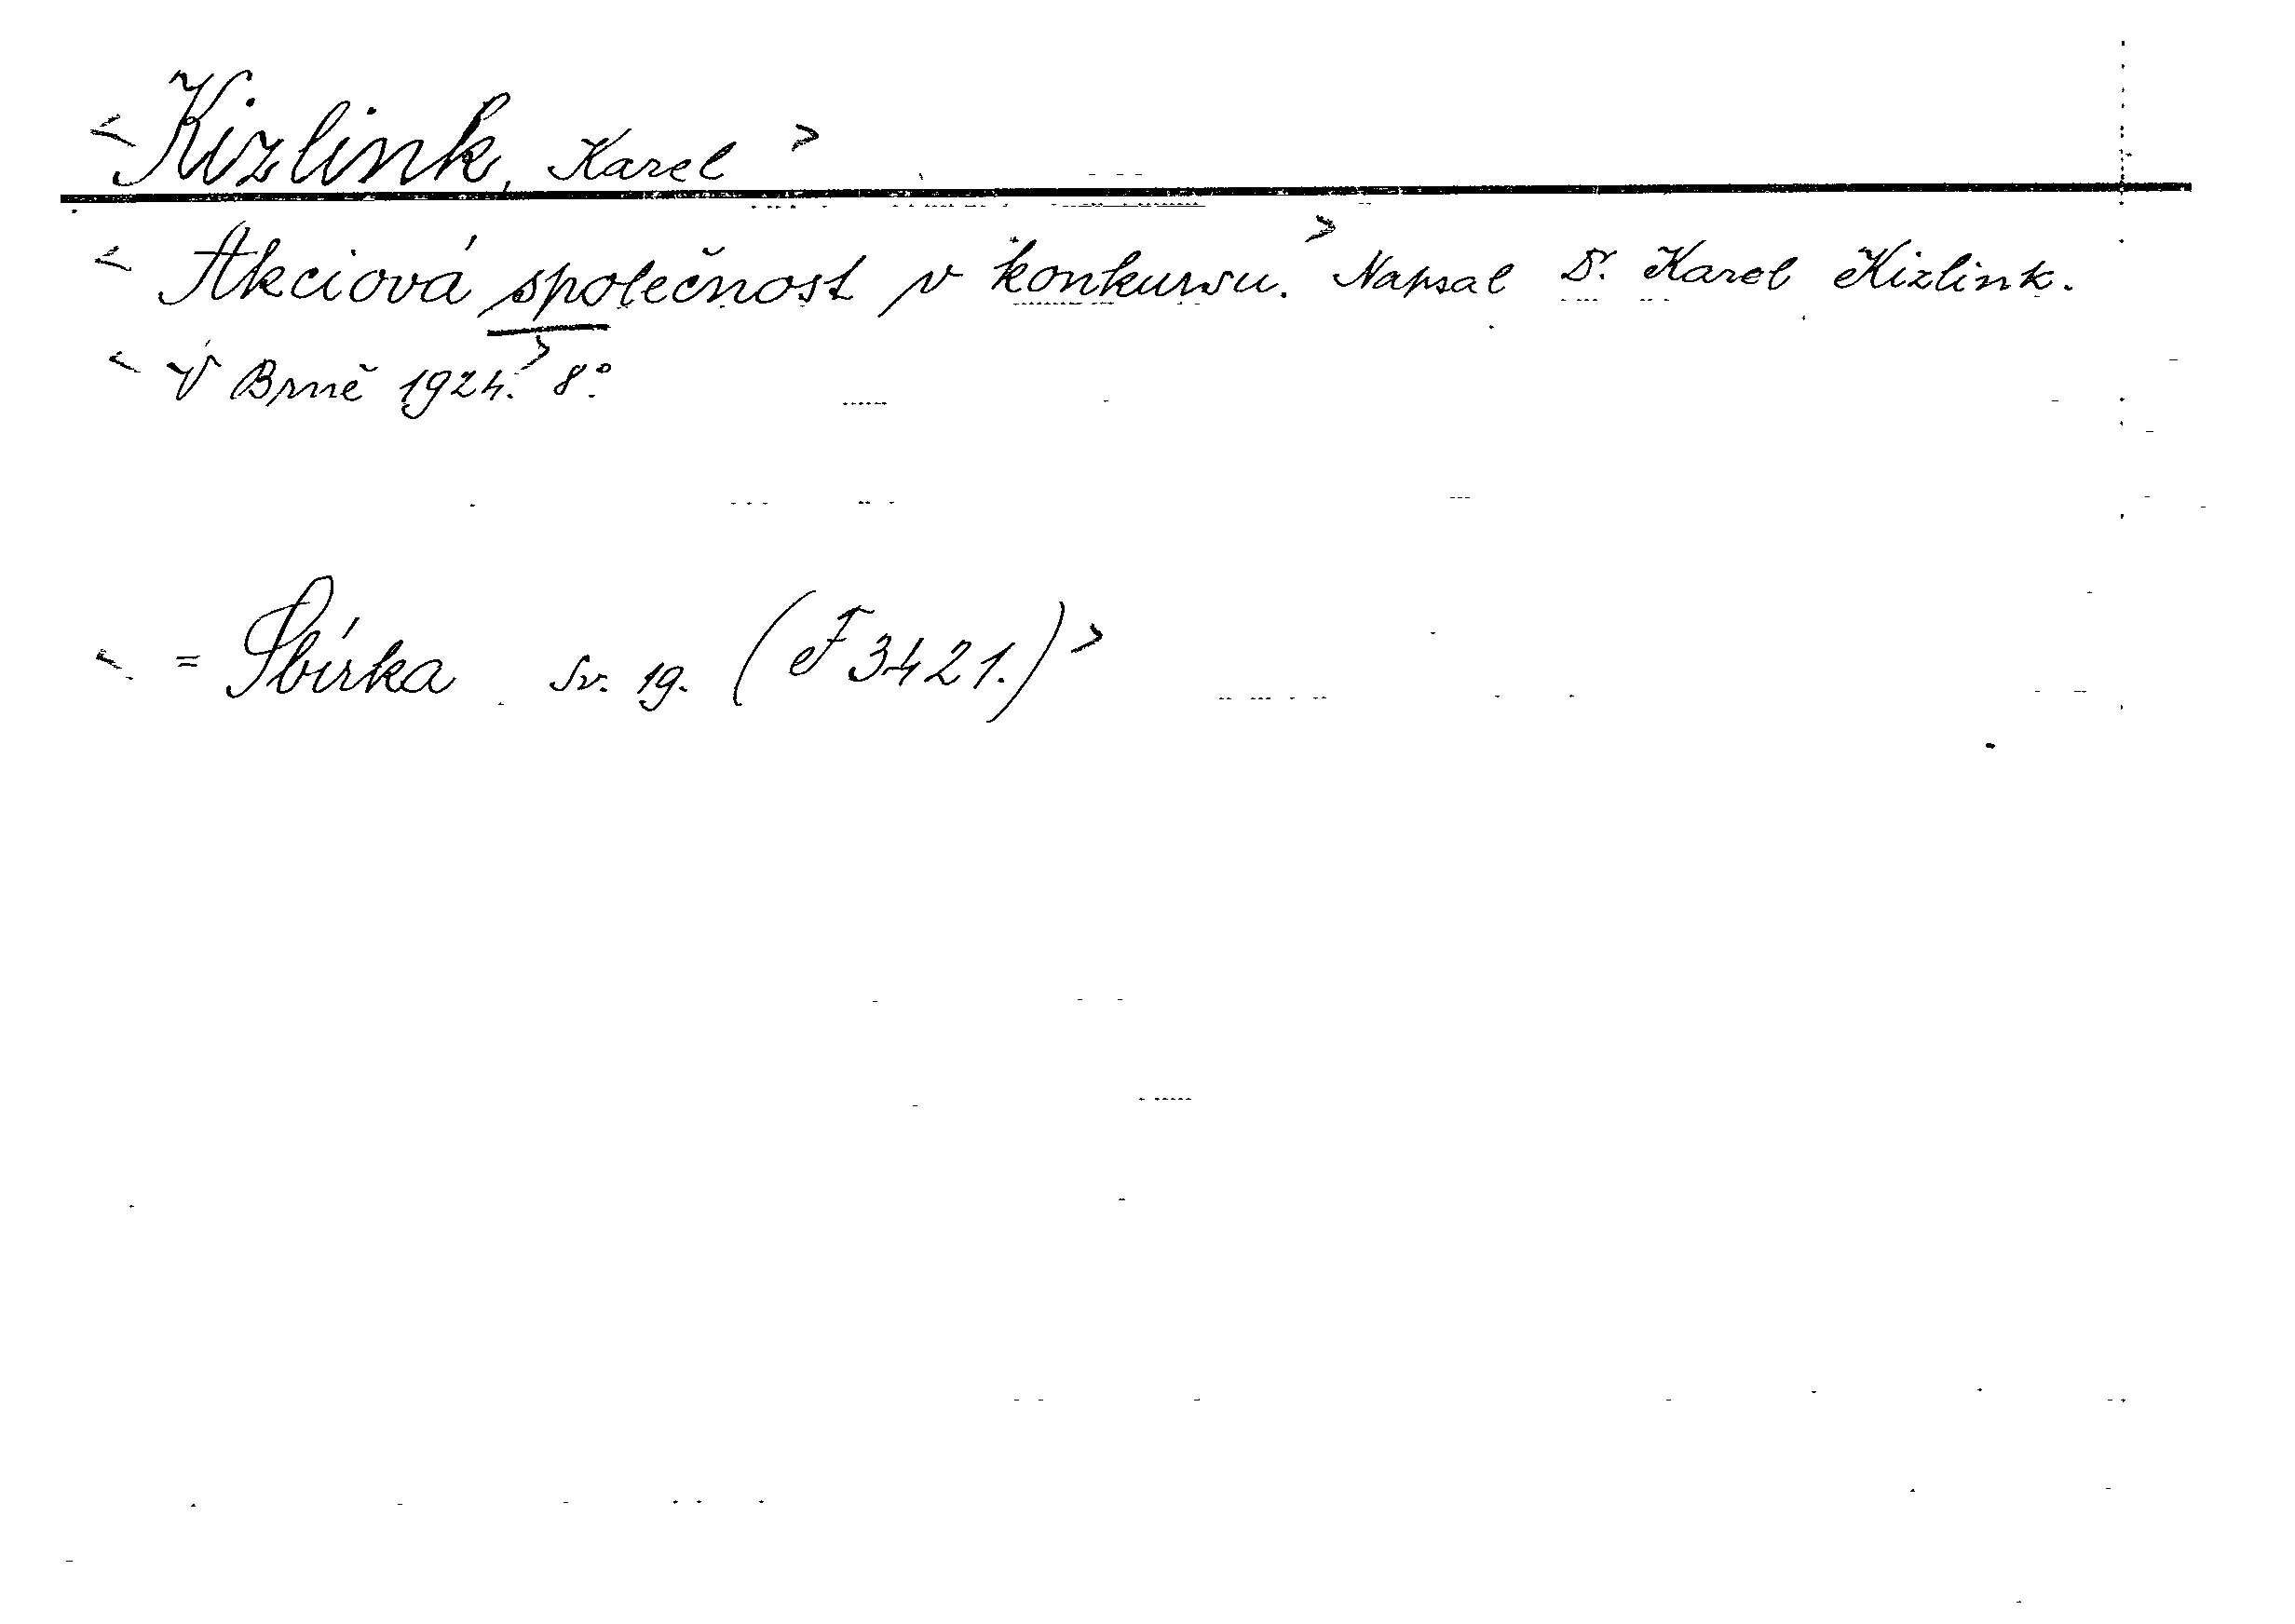 < Kizlink, Karel >
< Akciová společnost v konkursu. > Napsal Dr. Karel Kizlink.
< V Brně 1924. > 8°.
< = Sbírka sv. 19. (F 3421.) >